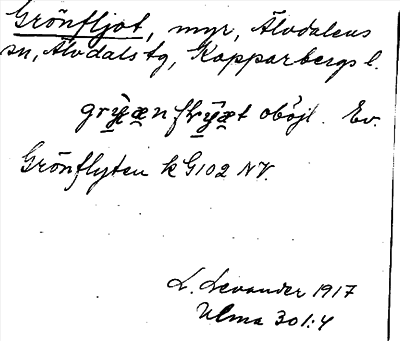 Grönfljot, myr, Älvdalens
sn, Älvdals tg, Kopparbergs l.
oböjl. Ev.
Grönflyten k G102 NV.
L. Levander 1917
Ulma 301:4